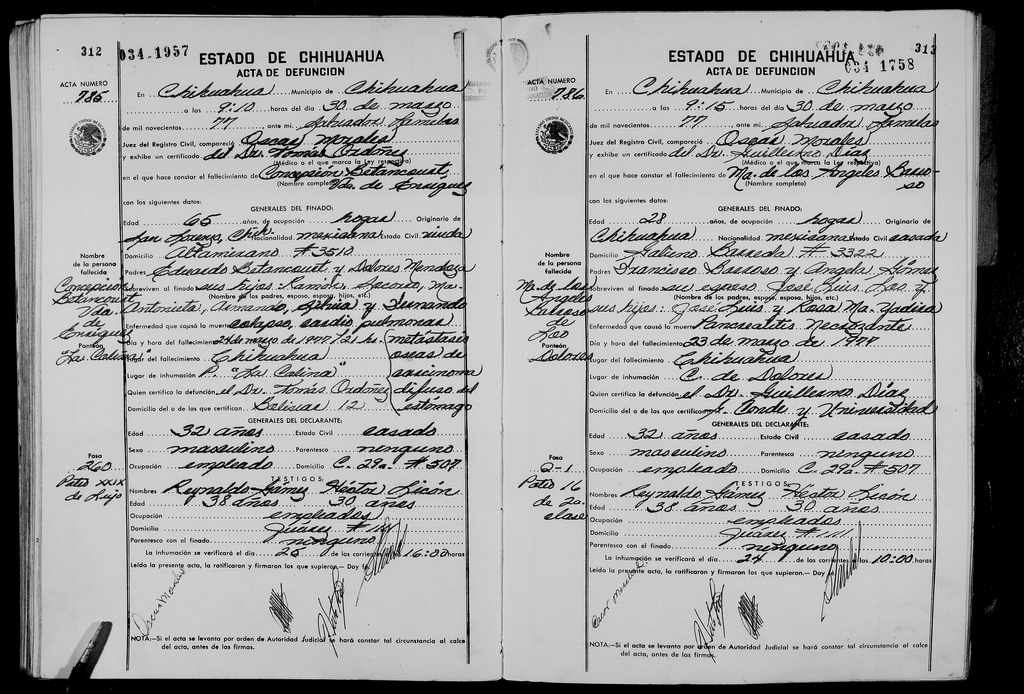 312
034 1957
ESTADO DE CHIHUAHUA
ACTA DE DEFUNCION
ACTA NUMERO
785
En Chihuahua Municipio de Chihuahua
a las 9:10 horas del día 30 de marzo
de mil novecientos 77 ante mi. Salvador
Juez del Registro Civil, compareció Oscar Morales
y exhibe un certificado del Dr. Tomás Ordóñez
(Médico o el que marca la Ley respectiva)
en el que hace constar el fallecimiento de Concepción Betancourt,
(Nombre completo) Vda. de Enriquez
con los siguientes datos:
GENERALES DEL FINADO:
Edad 65 años, de ocupación hogar Originario de
San Lorenzo, Chih. Nacionalidad mexicana Estado Civil viuda
Domicilio Altamirano # 3510
Padres Eduardo Betancourt y Dolores Mendoza
Sobreviven al finado sus hijos Ramón, Socorro, Ma.
(Nombre de los padres, esposo, esposa, hijos, etc.)
Antonieta, Armando, y Fernando
Enfermedad que causó la muerte colapso cardio pulmonar
Día y hora del fallecimiento marzo de 1977 / 21 hs. metástasis
Lugar del fallecimiento Chihuahua oseas de
Lugar de inhumación P. "La Colina" carcinoma
Quien certifica la defunción el Dr. Tomás Ordóñez difuso del
Domicilio del o de los que certifican Bolívar 12 estómago
GENERALES DEL DECLARANTE:
Edad 32 años Estado Civil casado
Sexo masculino Parentesco ninguno
Ocupación empleado Domicilio C. 29a. # 507
TESTIGOS:
Nombres Reynaldo Gámez Héctor Licón
Edad 38 años 30 años
Ocupación empleados
Domicilio Juárez # 1111
Parentesco con el finado ninguno
La inhumación se verificará el día 25 de los corrientes a las 16:00 horas
Leída la presente acta, la ratificaron y firmaron los que supieron.—Doy fe.
Oscar Morales
NOTA.—Si el acta se levanta por orden de Autoridad Judicial se hará constar tal circunstancia al calce
del acta, antes de las firmas.
Nombre
de la persona
fallecida
Concepción
Betancourt
Vda.
de
Enriquez
Panteón
"La Colina"
Fosa
260
Patio XXIX
de Lujo
313
034 1758
ESTADO DE CHIHUAHUA
ACTA DE DEFUNCION
ACTA NUMERO
786
En Chihuahua Municipio de Chihuahua
a las 9:15 horas del día 30 de marzo
de mil novecientos 77 ante mi. Salvador
Juez del Registro Civil, compareció Oscar Morales
y exhibe un certificado del Dr. Guillermo Díaz
(Médico o el que marca la Ley respectiva)
en el que hace constar el fallecimiento de Ma. de los Angeles Barro-
(Nombre completo) so
con los siguientes datos:
GENERALES DEL FINADO:
Edad 28 años, de ocupación hogar Originario de
Chihuahua Nacionalidad mexicana Estado Civil casada
Domicilio Barreda # 3322
Padres Francisco Barroso y Angela Gómez
Sobreviven al finado su esposo José Luis Loo y
(Nombre de los padres, esposo, esposa, hijos, etc.)
sus hijos: José Luis y Rosa Ma. Yadira
Enfermedad que causó la muerte Pancreatitis Necrozante
Día y hora del fallecimiento 23 de marzo de 1977
Lugar del fallecimiento Chihuahua
Lugar de inhumación C. de Dolores
Quien certifica la defunción el Dr. Guillermo Díaz
Domicilio del o de los que certifican Conde y Universidad
GENERALES DEL DECLARANTE:
Edad 32 años Estado Civil casado
Sexo masculino Parentesco ninguno
Ocupación empleado Domicilio C. 29a. # 507
TESTIGOS:
Nombres Reynaldo Gámez Héctor Licón
Edad 38 años 30 años
Ocupación empleados
Domicilio Juárez # 1111
Parentesco con el finado ninguno
La inhumación se verificará el día 24 de los corrientes a las 10:00 horas
Leída la presente acta, la ratificaron y firmaron los que supieron.—Doy fe.
NOTA.—Si el acta se levanta por orden de Autoridad Judicial se hará constar tal circunstancia al calce
del acta, antes de las firmas.
Nombre
de la persona
fallecida
Ma. de los
Angeles
Barroso
de
Loo
Panteón
Dolores
Fosa
Q-1
Patio 16
de 2a.
clase